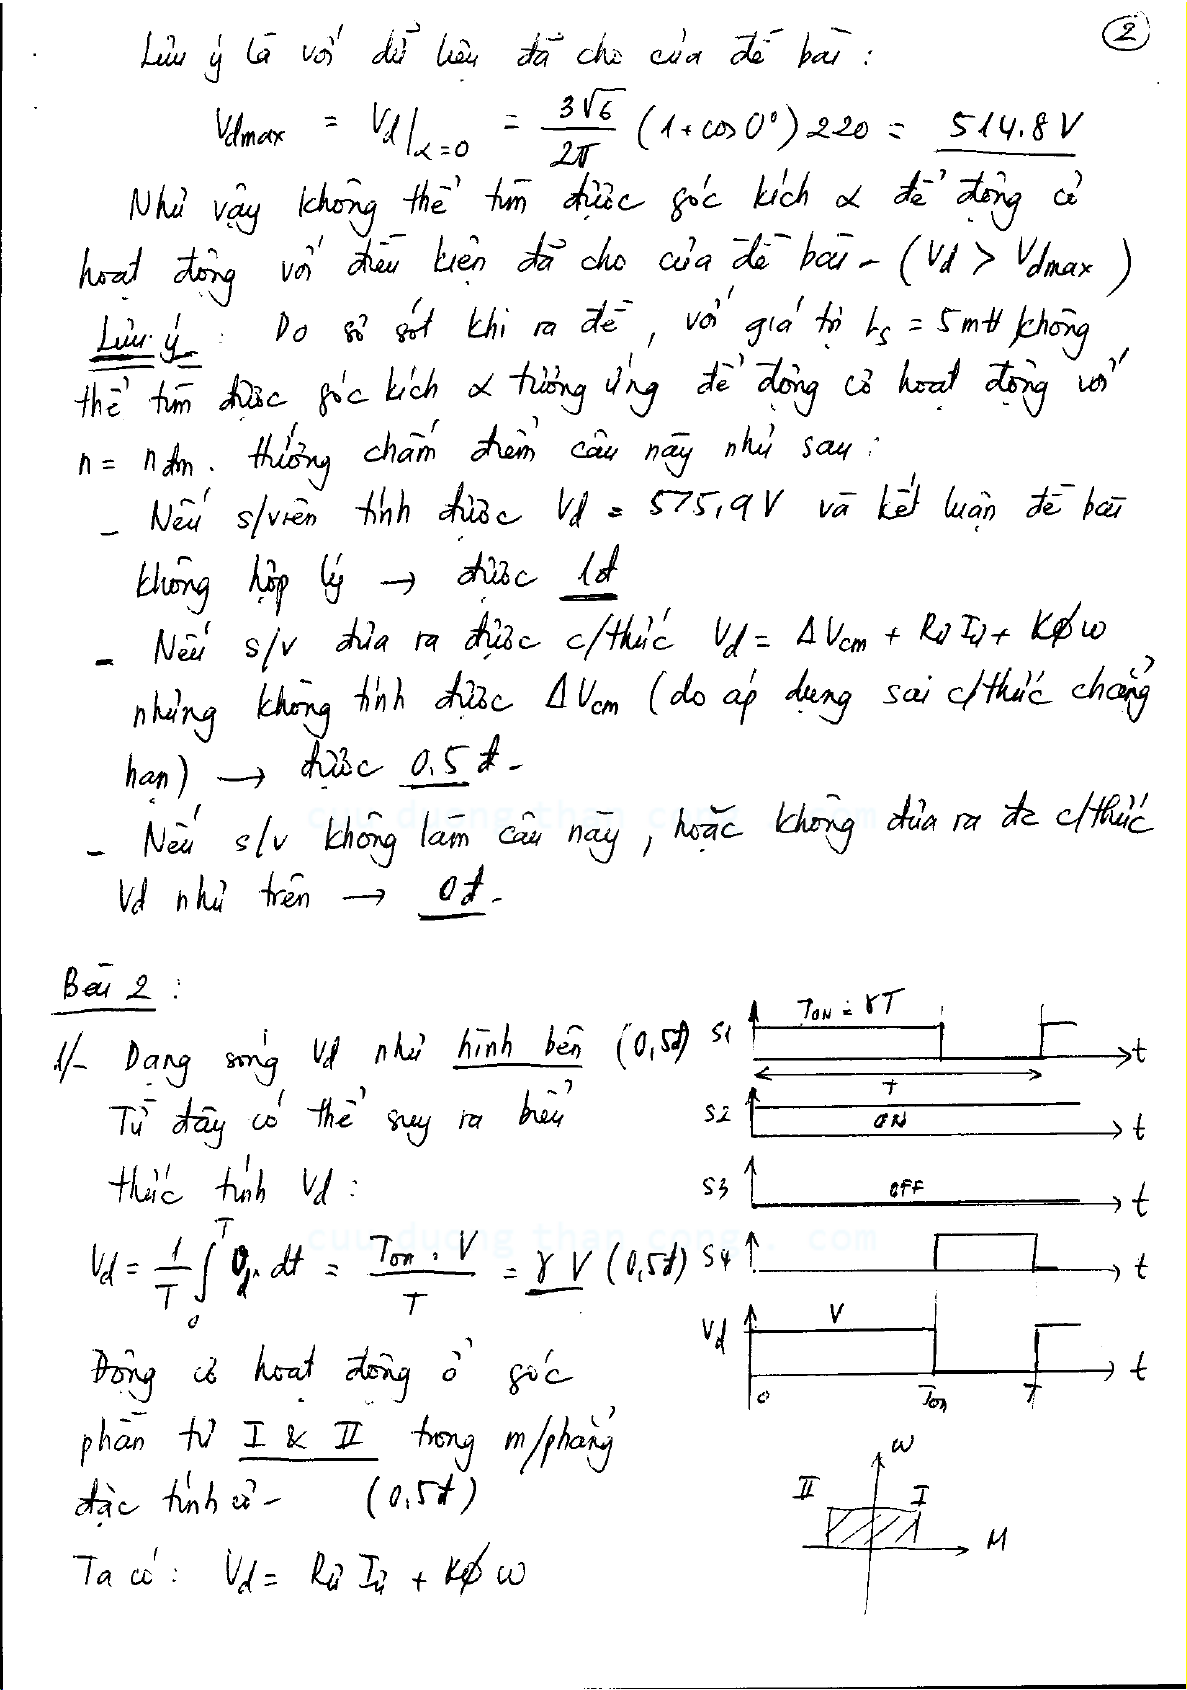 2
Lưu ý là với dữ liệu đã cho của đề bài :
Vdmax = Vd|α=0 = 3√6/2π (1+cos0°) 220 = 514.8 V
Như vậy không thể tìm được góc kích α để động cơ
hoạt động với điều kiện đã cho của đề bài - (Vd > Vdmax)
Lưu ý : Do sơ sót khi ra đề, với giá trị Ls = 5mH không
thể tìm được góc kích α tương ứng để động cơ hoạt động với
n = nđm. Hướng chấm điểm câu này như sau :
- Nếu s/viên tính được Vd = 575,9V và kết luận đề bài
không hợp lý → được 1đ
- Nếu s/v đưa ra được c/thức Vd = ΔVcm + RưIư + Kφω
nhưng không tính được ΔVcm (do áp dụng sai c/thức chẳng
hạn) → được 0.5đ -
- Nếu s/v không làm câu này, hoặc không đưa ra đc c/thức
Vd như trên → 0đ -
cuu duong than cong . com
Bài 2 :
1/- Dạng sóng Vd như hình bên (0,5đ)
Từ đây có thể suy ra biểu
thức tính Vd :
Vd = 1/T ∫0T dt = Ton . V/T = γ V (0,5đ)
cuu duong than cong . com
Động cơ hoạt động ở góc
phần tư I & II trong m/phẳng
đặc tính cơ - (0,5đ)
Ta có : Vd = RưIư + Kφω
S1 TON = γT t
T
S2 ON t
S3 OFF t
S4 t
Vd V t
0 Ton T
ω
II I
M